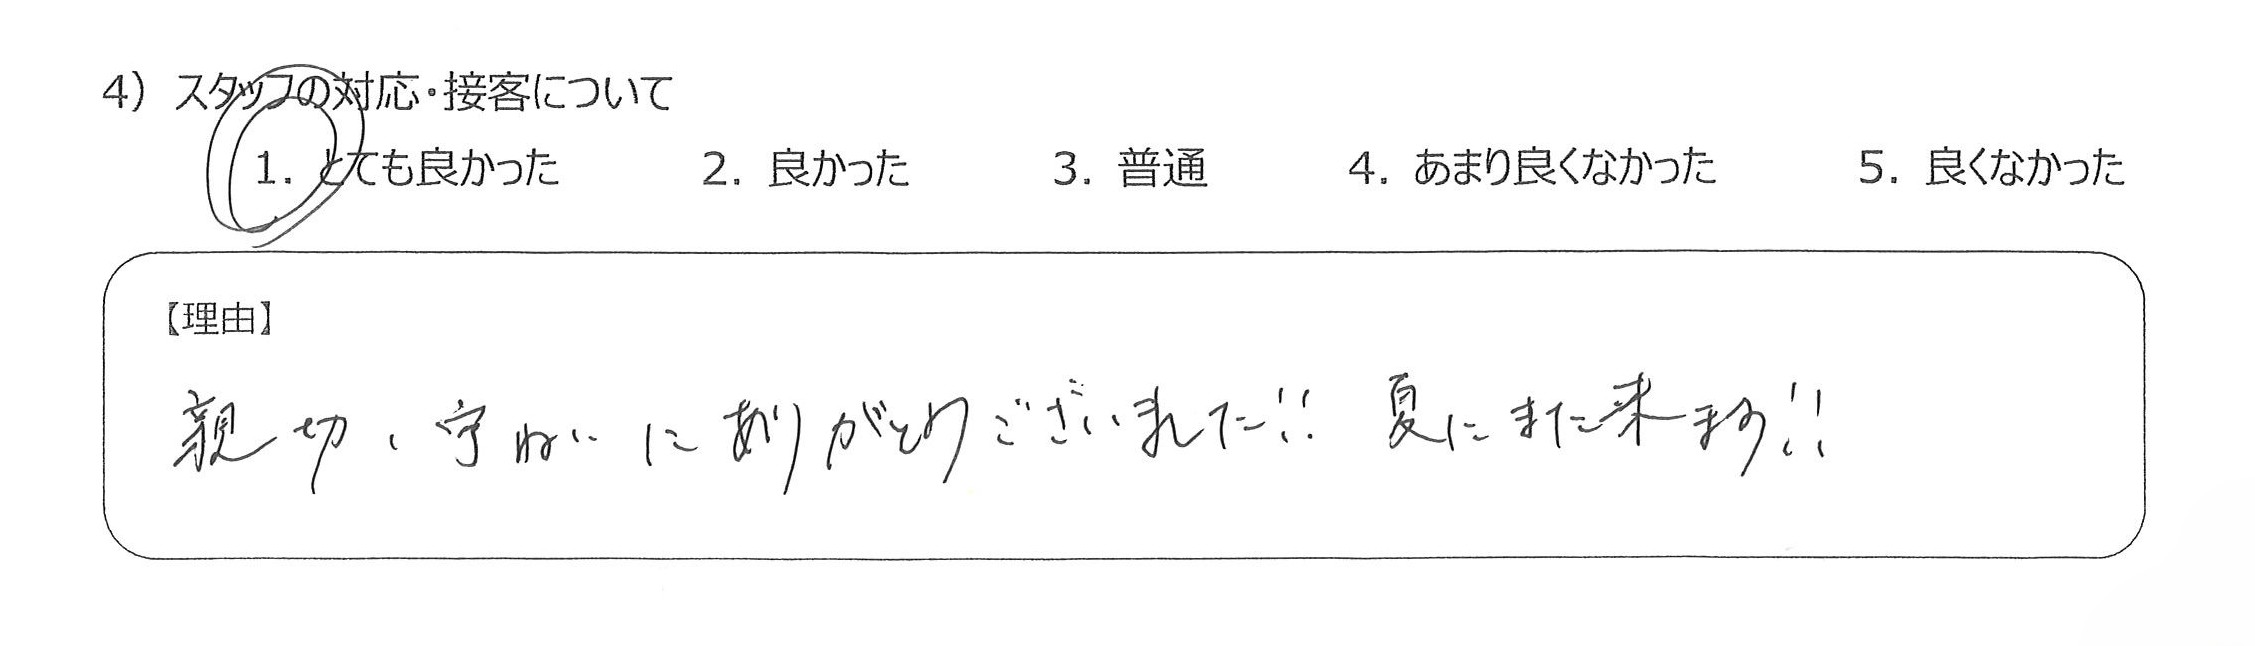 4) スタッフの対応・接客について
1. とても良かった 2. 良かった 3. 普通 4. あまり良くなかった 5. 良くなかった
【理由】
親切、丁ねいにありがとうございました!! 夏にまた来ます!!